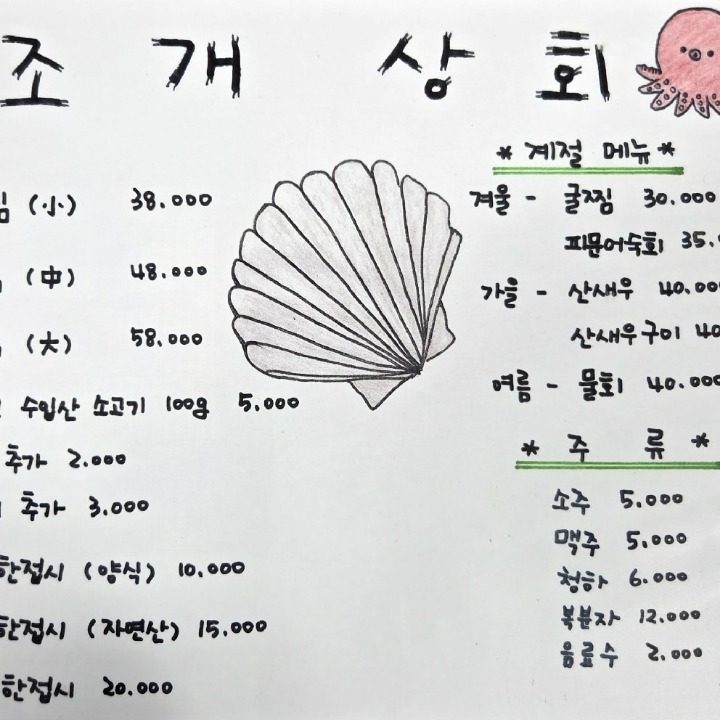 조개상회
찜 (小) 38.000
(中) 48.000
(大) 58.000
수입산 소고기 100g 5.000
추가 2.000
추가 3.000
한접시 (양식) 10.000
한접시 (자연산) 15.000
한접시 20.000
* 계절 메뉴 *
겨울 - 굴찜 30.000
피문어숙회 35.
가을 - 산새우 40.000
산새우구이 40
여름 - 물회 40.000
* 주류 *
소주 5.000
맥주 5.000
청하 6.000
복분자 12.000
음료수 2.000